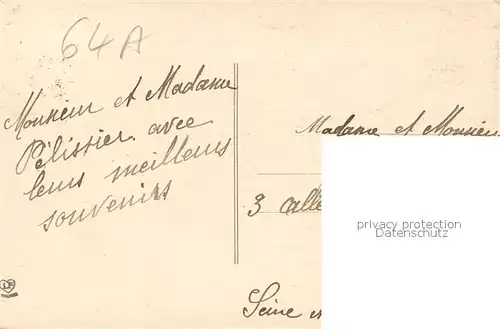 64A
Monsieur et Madame
Pélissier avec
leurs meilleurs
souvenirs
Madame et Monsieur
3
Seine
privacy protection
Datenschutz